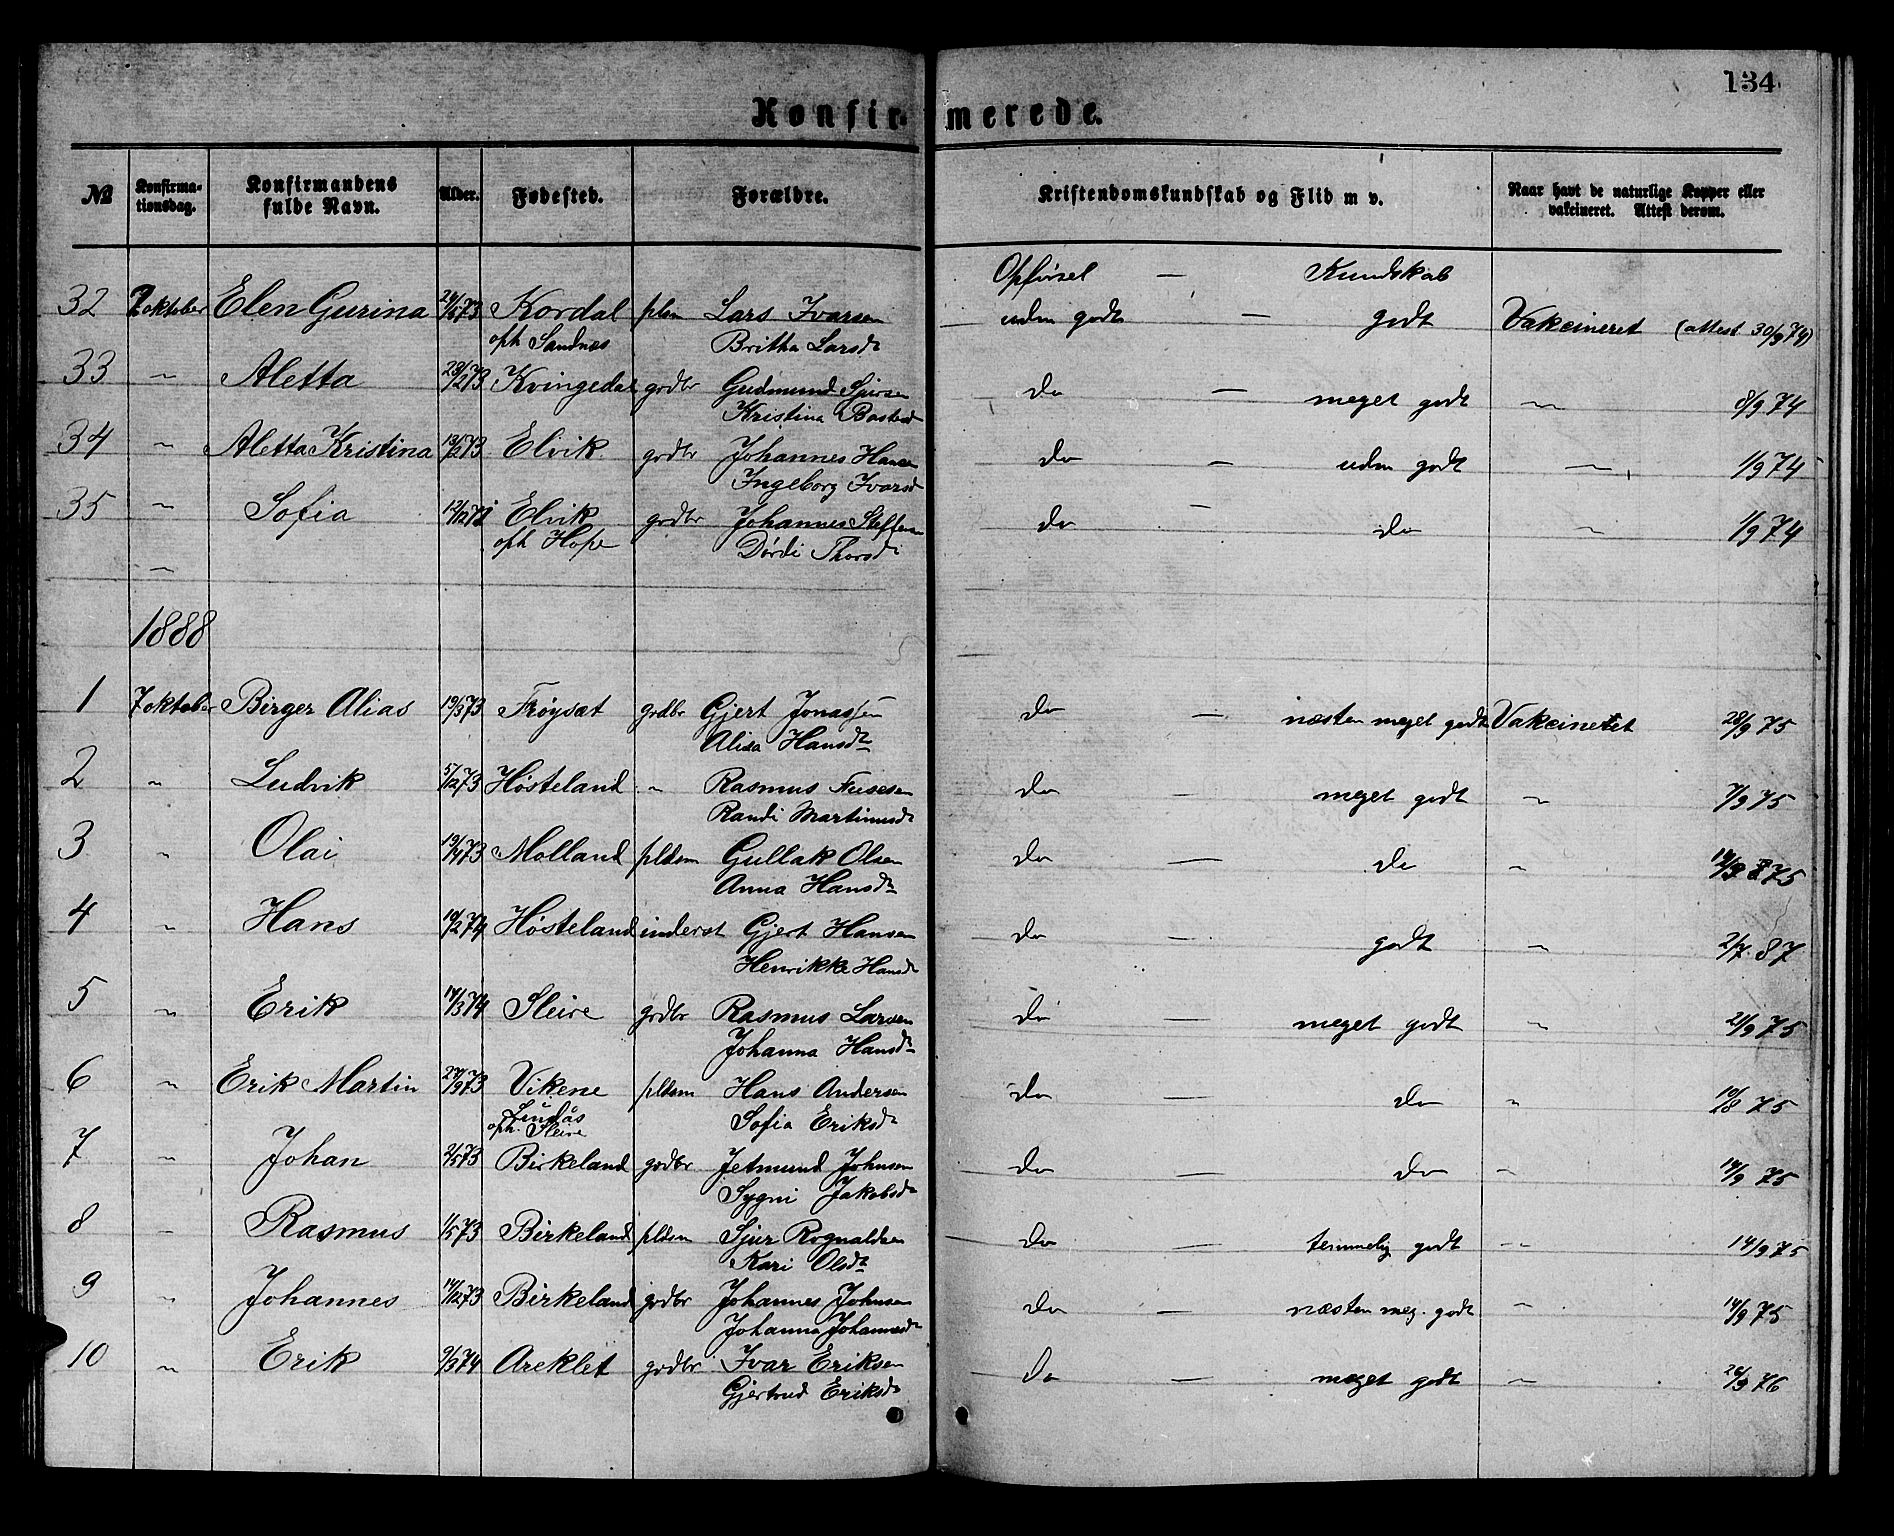 134
Konfirmerede.
No
Konfirmationsdag.
Konfirmandens fulde Navn.
Alder.
Fødested.
Forældre.
Kristendomskundskab og Flid m v.
Naar havt de naturlige Kopper eller vakcineret. Attest derom.
Opførsel — Kundskab
32 2 oktober Elen Gurina 73 Kordal plsm Lars Ivarsen — uden godt — godt Vakcineret (attest 30/9 74)
oph Sandnæs Britha Larsdt
33 " Aletta 28/2 73 Kvingedal grdbr Gudmund Sjursen do — meget godt " 8/9 74
Kristina Bastesdt
34 " Aletta Kristina 73 Elvik grdbr Johannes Hansen do — uden godt " 1/9 74
Ingeborg Ivarsdt
35 " Sofia 12/12 72 Elvik grdbr Johannes Steffensen do — do " 1/9 74
oph Hope Dørdi Thorsdt
"
1888
1 7 oktober Birger Alias 19/5 73 Frøysæt grdbr Gjert Jonassen do — næsten meget godt Vakcineret 28/9 75
Alisa Hansdt
2 " Ludvik 5/12 73 Høsteland " Rasmus do — meget godt " 7/9 75
Randi Martinusdt
3 " Olai 73 Molland pldsm Gullak Olsen do — do " 75
Anna Hansdt
4 " Hans 19/2 74 Høsteland inderst Gjert Hansen do — godt " 2/7 87
Henrikke Hansdt
5 " Erik 17/3 74 Sleire grdbr Rasmus Larsen do — meget godt " 21/9 75
Johanna Hansdt
6 " Erik Martin 27/9 73 Vikene pldsm Hans Andersen do — do " 10/8 75
Lindås Sofia Eriksdt
oph. Sleire
7 " Johan 2/5 73 Birkeland grdbr Jetmund Johnsen do — do " 14/9 75
Sygni Jakobsdt
8 " Rasmus 1/5 73 Birkeland pldsm Sjur Rognaldsen do — temmelig godt " 14/9 75
Kari Olsdt
9 " Johannes 14/12 73 Birkeland grdbr Johannes Johnsen do — næsten meg. godt " 14/9 75
Johanna Johannesdt
10 " Erik 9/3 74 Areklet grdbr Ivar Eriksen do — meget godt " 26/9 76
Gjertrud Eriksdt